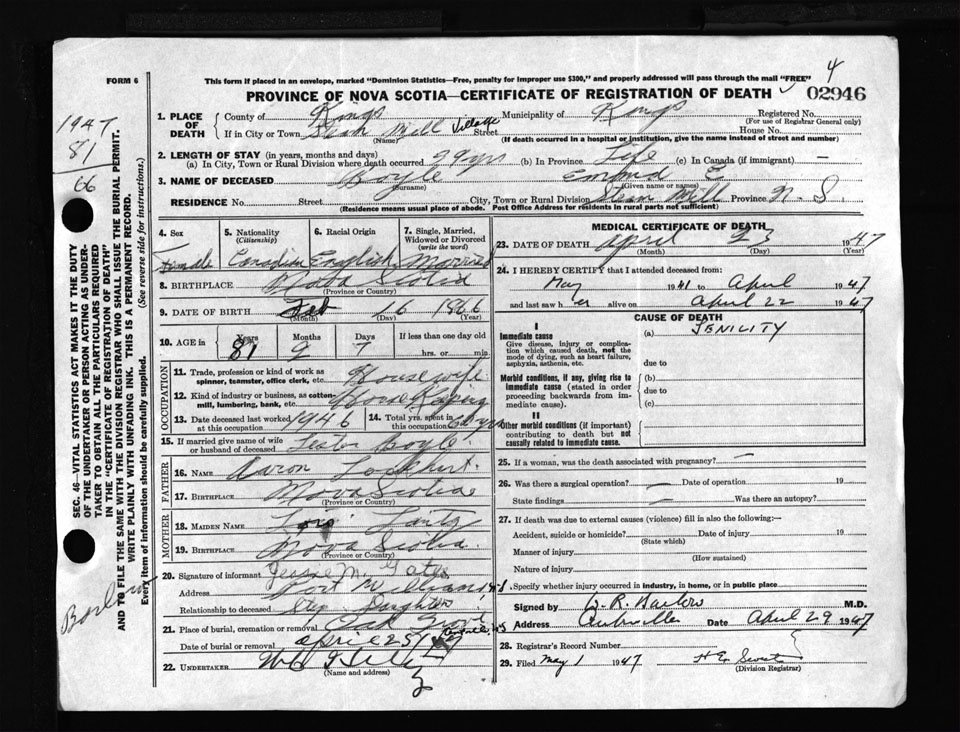 FORM 6
This form if placed in an envelope, marked "Dominion Statistics—Free, penalty for improper use $300," and properly addressed will pass through the mail "FREE"
4
PROVINCE OF NOVA SCOTIA—CERTIFICATE OF REGISTRATION OF DEATH
02946
1947
81
66
1. PLACE OF DEATH
County of Kings Municipality of Kings Registered No.
(For use of Registrar General only)
If in City or Town Steam Mill Village Street House No.
(Name) (If death occurred in a hospital or institution, give the name instead of street and number)
2. LENGTH OF STAY (in years, months and days)
(a) In City, Town or Rural Division where death occurred 29 yrs (b) In Province Life (c) In Canada (if immigrant) —
3. NAME OF DECEASED Boyle E
(Surname) (Given name or names)
RESIDENCE No. Street City, Town or Rural Division Steam Mill Province N. S.
(Residence means usual place of abode. Post Office Address for residents in rural parts not sufficient)
4. Sex 5. Nationality (Citizenship) 6. Racial Origin 7. Single, Married, Widowed or Divorced (write the word)
Female Canadian English Married
8. BIRTHPLACE Nova Scotia
(Province or Country)
9. DATE OF BIRTH Feb 16 1866
(Month) (Day) (Year)
10. AGE in Years Months Days If less than one day old
81 7 hrs. or min.
OCCUPATION
11. Trade, profession or kind of work as spinner, teamster, office clerk, etc. Housewife
12. Kind of industry or business, as cotton-mill, lumbering, bank, etc. House Keeping
13. Date deceased last worked at this occupation 1946 14. Total yrs. spent in this occupation
15. If married give name of wife or husband of deceased Lester Boyle
FATHER
16. NAME Aaron Lockhart
17. BIRTHPLACE Nova Scotia
(Province or Country)
MOTHER
18. MAIDEN NAME Lantz
19. BIRTHPLACE Nova Scotia
(Province or Country)
20. Signature of informant Jessie M.
Address Port Williams N.S.
Relationship to deceased Step Daughter
21. Place of burial, cremation or removal Oak Grove
Date of burial or removal April 25/47
22. UNDERTAKER
(Name and address)
MEDICAL CERTIFICATE OF DEATH
23. DATE OF DEATH April 23 1947
(Month) (Day) (Year)
24. I HEREBY CERTIFY that I attended deceased from:
May 1941 to April 1947
and last saw her alive on April 22 1947
CAUSE OF DEATH
I
Immediate cause (a) SENILITY
Give disease, injury or complication which caused death, not the mode of dying, such as heart failure, asphyxia, asthenia, etc.
due to
Morbid conditions, if any, giving rise to immediate cause (stated in order proceeding backwards from immediate cause).
(b)
due to
(c)
II
Other morbid conditions (if important) contributing to death but not causally related to immediate cause.
25. If a woman, was the death associated with pregnancy? —
26. Was there a surgical operation? — Date of operation 19
State findings — Was there an autopsy?
27. If death was due to external causes (violence) fill in also the following:—
Accident, suicide or homicide? Date of injury 19
(State which)
Manner of injury
(How sustained)
Nature of injury
Specify whether injury occurred in industry, in home, or in public place
Signed by M.D.
Address Date April 29 1947
28. Registrar's Record Number
29. Filed May 1 1947
(Division Registrar)
SEC. 46—VITAL STATISTICS ACT MAKES IT THE DUTY OF THE UNDERTAKER OR PERSON ACTING AS UNDERTAKER TO OBTAIN ALL THE PARTICULARS REQUIRED IN THE "CERTIFICATE OF REGISTRATION OF DEATH" AND TO FILE THE SAME WITH THE DIVISION REGISTRAR WHO SHALL ISSUE THE BURIAL PERMIT.
WRITE PLAINLY WITH UNFADING INK. THIS IS A PERMANENT RECORD.
Every item of information should be carefully supplied. (See reverse side for instructions.)